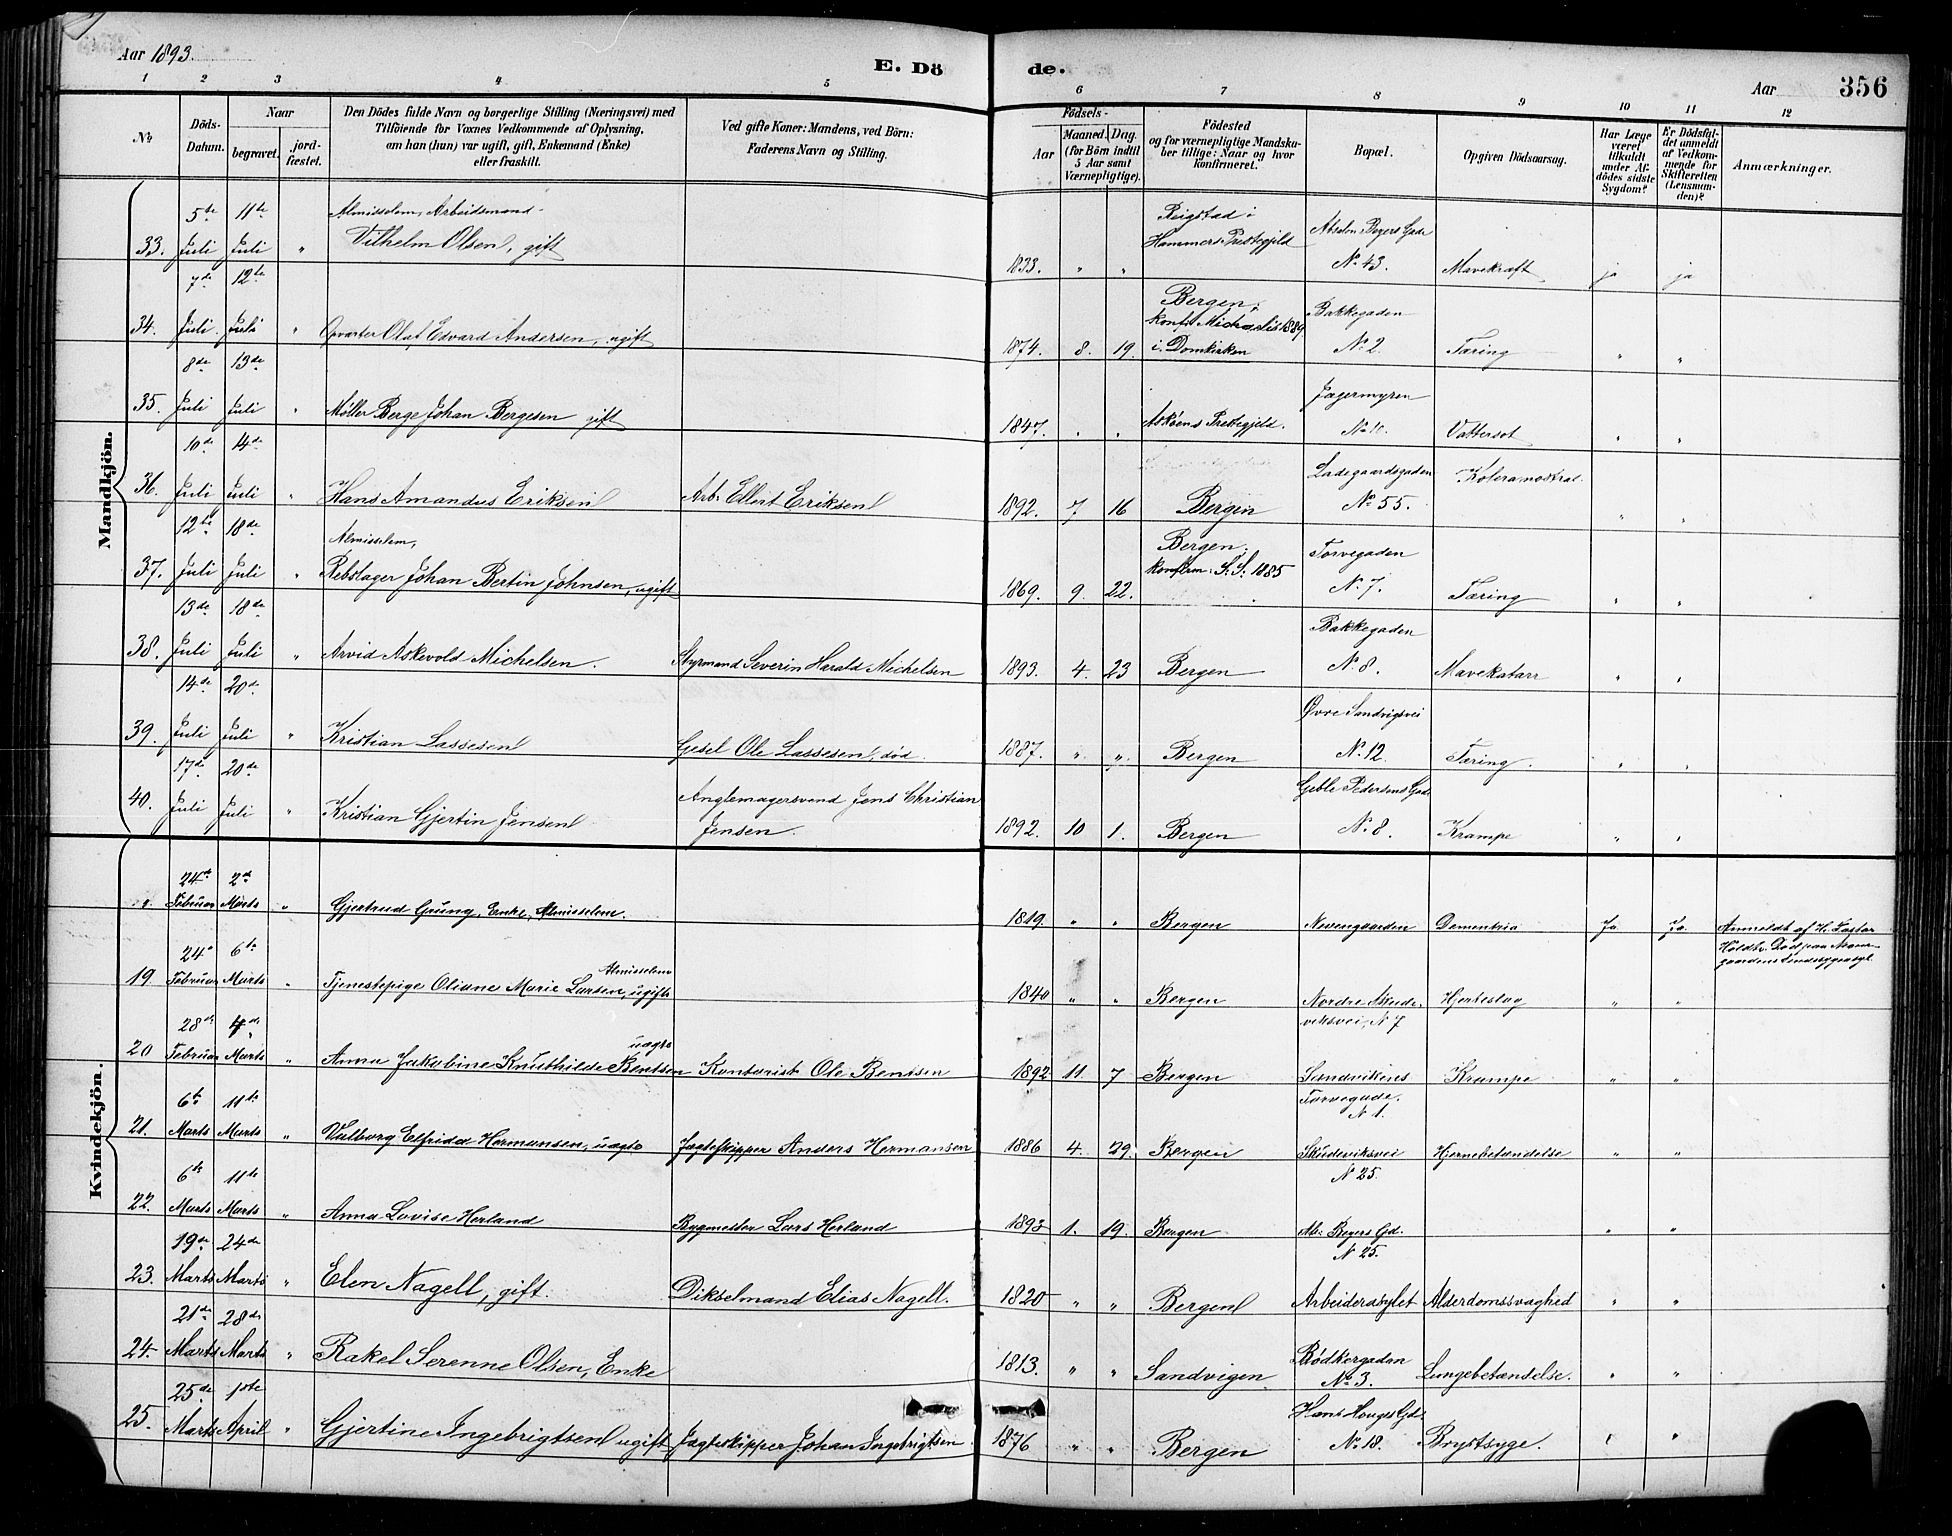 Aar 1893.
E. Dö
de.
Aar
356
1 2 3 4 5 6 7 8 9 10 11 12
No.
Döds-Datum.
Naar
begravet.
jordfæstet.
Den Dödes fulde Navn og borgerlige Stilling (Næringsvei) med
Tilföiende for Voxnes Vedkommende af Oplysning,
om han (hun) var ugift, gift, Enkemand (Enke)
eller fraskilt.
Ved gifte Koner: Mandens, ved Börn:
Faderens Navn og Stilling.
Födsels-
Aar
Maaned. Dag.
(for Börn indtil
5 Aar samt
Værnepligtige).
Födested
og for værnepligtige Mandska-
ber tillige: Naar og hvor
konfirmeret.
Bopæl.
Opgiven Dödsaarsag.
Har Læge
været
tilkaldt
under Af-
dödes sidste
Sygdom?
Er Dödsfal-
det anmeldt
af Vedkom-
mende for
Skifteretten
(Lensman-
den)?
Anmærkninger.
Mandkjön.
33. 5te Juli 11te Juli " Almisselem, Arbeidsmand Vilhelm Olsen, gift 1833. " " Reigstad i Hammers Prestegjeld Absalon Beyers Gade No 43. Mavekræft ja ja
34. 7de Juli 12te Juli " Opvarter Olaf Edvard Andersen, ugift 1874. 8. 19. Bergen, konf. Michaelis 1889 i Domkirken Bakkegaden No 2. Tæring " "
35. 8de Juli 13de Juli " Møller Berge Johan Bergesen gift 1847. " " Askøens Prestegjeld. Jægermyren Vattersot " "
36. 10de Juli 14de Juli " Hans Amandus Eriksen Arb. Ellert Eriksen 1892. 7 16 Bergen Ladegaardsgaden No 55. " "
37. 12te Juli 18de Juli " Almisselem, Rebslager Johan Bertin Johnsen, ugift 1869. 9. 22. Bergen, konfirm. S. S. 1885 Torvegaden No 7. Tæring " "
38. 13de Juli 18de Juli " Arvid Askevold Michelsen. Styrmand Severin Harald Michelsen 1893. 4. 23 Bergen Bakkegaden No 8. Mavekatarr " "
39. 14de Juli 20de Juli " Kristian Lassesen Gesel Ole Lassesen, død. 1887. " " Bergen Øvre Sandvigsvei No 12. Tæring. " "
40. 17de Juli 20de Juli " Kristian Gjertin Jensen Anglemagersvend Jens Christian Jensen 1892. 10 1. Bergen Geble Pedersens Gad. No 8. Krampe " "
Kvindekjön.
" 24de Februar 2de Marts " Gjertrud Grung, Enke, Almisselem. 1819. " " Bergen Nevengaarden Dementia Ja Ja Anmeldt af H. Pastor
19 24de Februar 6te Marts " Tjenestepige Oliane Marie Larsen, ugift Almisselem 1840 " " Bergen Nordre Skudeviksvei, N 7 Hjerteslag " "
20 28de Februar 4de Marts " Anna Jakobine Knuthilde Bentsen uægte Kontorist Ole Bentsen 1892 11. 7 Bergen Sandvikens Torvegade. N 1. Krampe " "
21. 6te Marts 11te Marts " Valborg Elfrida Hermansen, uægte Jagteskipper Anders Hermansen 1886 4. 29. Bergen Skudeviksvei N 25. Hjernebetændelse " "
22. 6te Marts 11te Marts " Anna Lovise Herland Bygmester Lars Herland 1893 1. 19. Bergen Ab: Beyers Gd. N 25. " "
23. 19de Marts 24de Marts " Elen Nagell, gift. Dikselmand Elias Nagell. 1820 " " Bergen Arbeiderasylet Alderdomssvaghed " "
24. 21de Marts 28de Marts " Rakel Serenne Olsen, Enke 1813. " " Sandvigen Bødkergaden No 3. Lungebetændelse. " "
25. 25de Marts 1ste April " Gjertine Ingebrigtsen ugift Jagteskipper Johan Ingebrigtsen 1876 " " Bergen Hans Hauges Gd. No 18. Brystsyge. " "